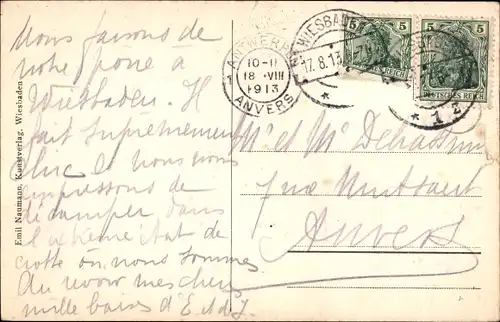 Nous faisons de
notre pose à
Wiesbaden. Il
fait suprêmement
chic et nous nous
empressons de
décamper dans
l'extrême état de
où nous sommes.
Au revoir mes chers
mille baisers d'E et de J.
Emil Naumann, Kunstverlag, Wiesbaden
ANTWERPEN
10-11
18 VIII
1913
ANVERS
WIESBAD
17.8.13
* 1 z
5 5
DEUTSCHES REICH
5 5
DEUTSCHES REICH
Mr et Me
rue
Anvers